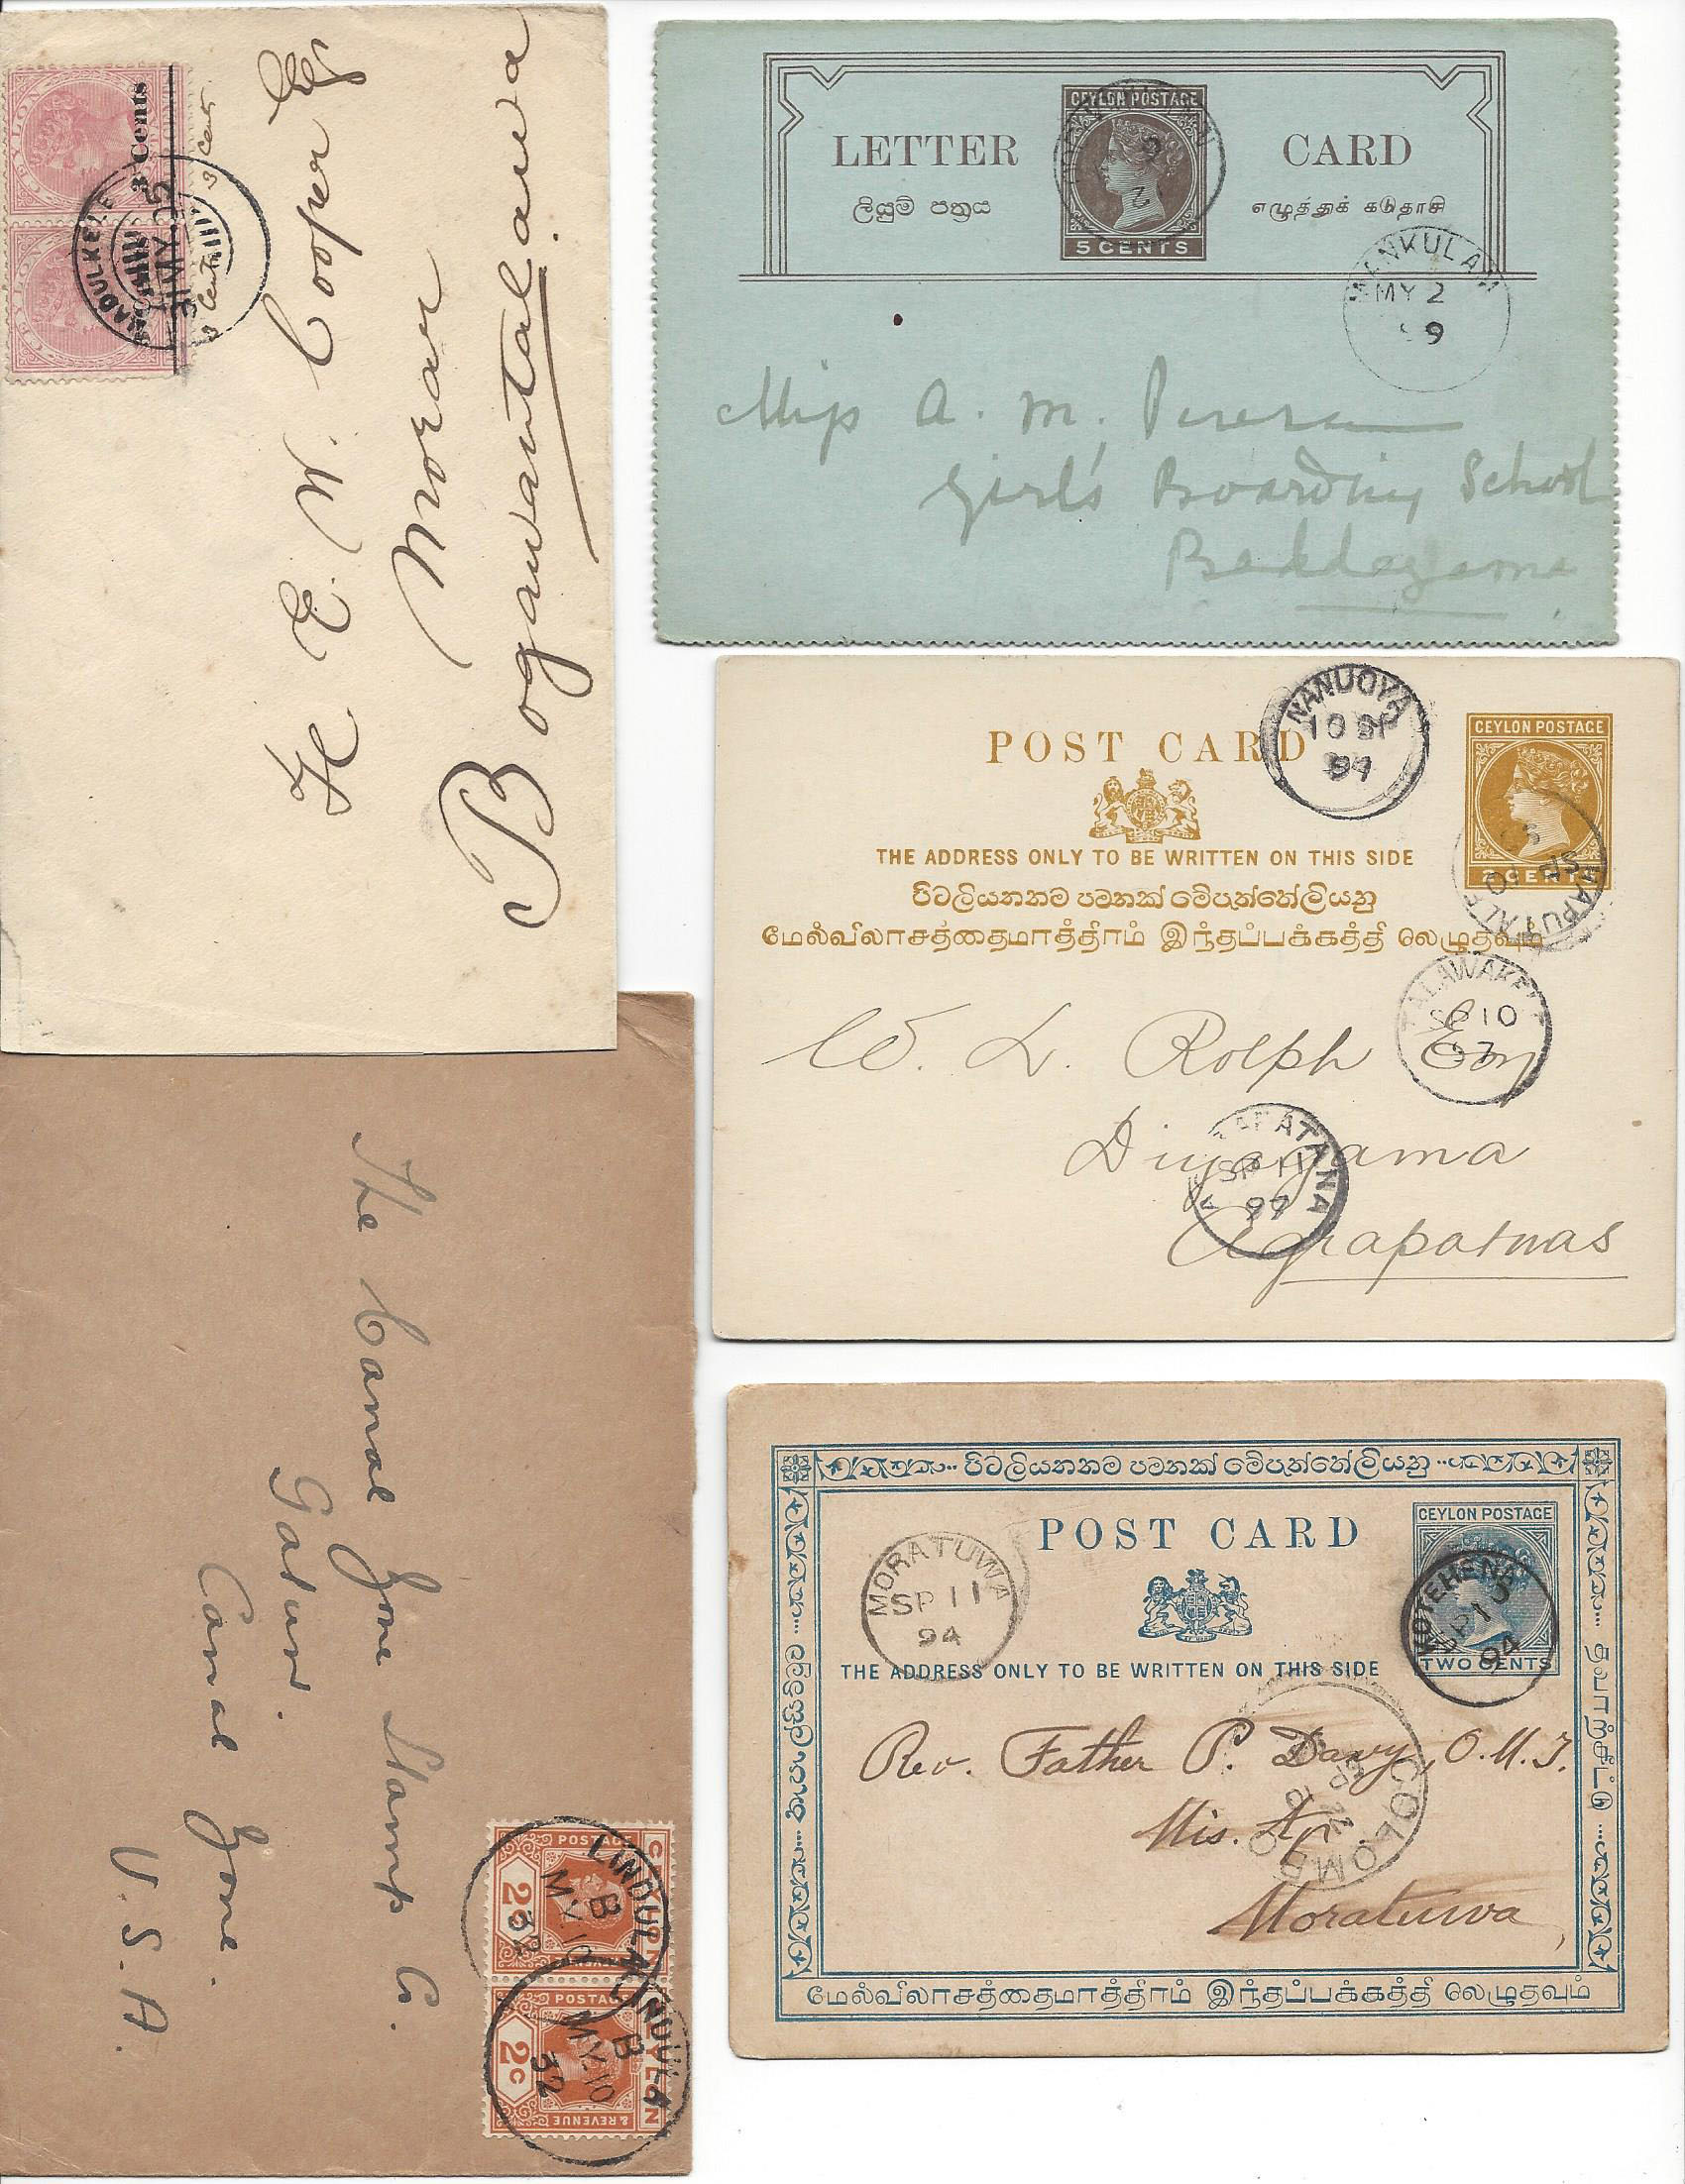 CEYLON
CEYLON
3 Cents
MADULKELE
31 MY 05
3 Cents
3 Cents
H E W Cooper Esq
Moran
Bogawantalawa
LETTER CARD
ලියුම් පත්‍රය
எழுத்துக் கடுதாசி
CEYLON POSTAGE
5 CENTS
MANKULAM
MY 2
99
Miss A. M. Perera
Girl's Boarding School
Baddegama
POST CARD
CEYLON POSTAGE
NANUOYA
10 SP
97
THE ADDRESS ONLY TO BE WRITTEN ON THIS SIDE
පිටලියනතම පමනක් මේපැත්තේලියනු
மேல்விலாசத்தைமாத்திரம் இந்தப்பக்கத்தி லெழுதவும்
2 CENTS
HAPUTALE
SP
TALAWAKELE
SP 10
97
W. L. Rolph Esq
Diyagama
Agrapatnas
AGRAPATANA
SP 11
97
The Canal Zone Stamp Co.
Gatun.
Canal Zone.
U.S.A.
CEYLON
POSTAGE
2c
CEYLON
POSTAGE & REVENUE
2c
LINDULA
B
MY.10
32
LINDULA
B
MY.10
32
පිටලියනතම පමනක් මේපැත්තේලියනු
POST CARD
CEYLON POSTAGE
TWO CENTS
MORATUWA
SP 11
94
KOTEHENA
SP 10
94
THE ADDRESS ONLY TO BE WRITTEN ON THIS SIDE
COLOMBO
SP 10
Rev. Father P. Davy, O.M.I.
Mis. Ap.
Moratuwa
தபாற்சீட்டு
மேல்விலாசத்தைமாத்திரம் இந்தப்பக்கத்தி லெழுதவும்